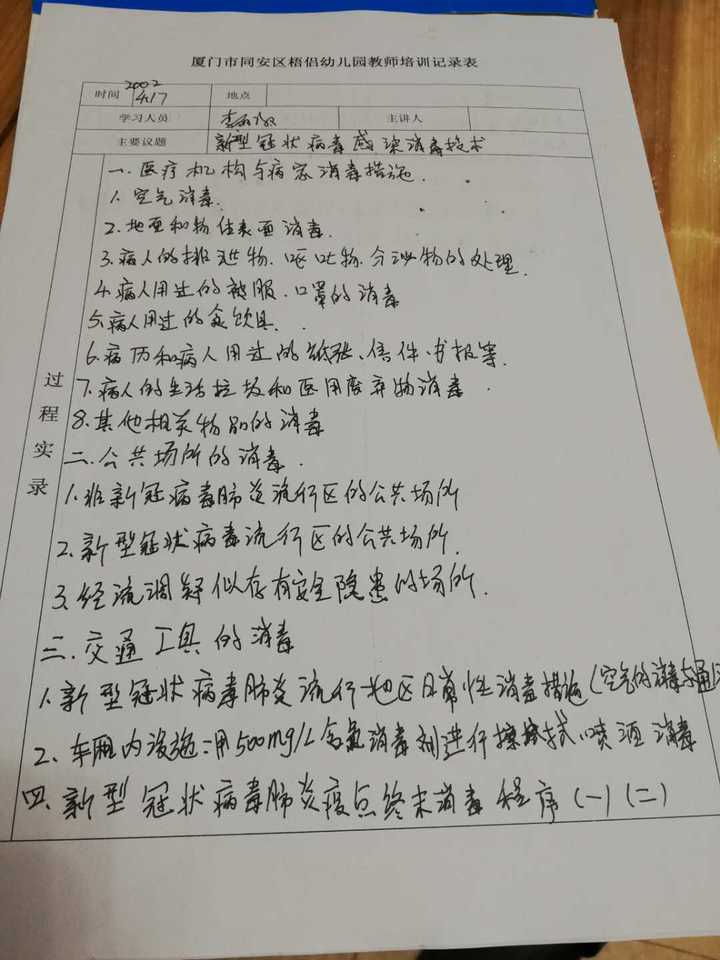 厦门市同安区梧侣幼儿园教师培训记录表
时间 2002 4.17 地点
学习人员 主讲人
主要议题 新型冠状病毒感染消毒技术
过程实录
一.医疗机构与病家消毒措施.
1.空气消毒.
2.地面和物体表面消毒.
3.病人的排泄物.呕吐物.分泌物的处理.
4.病人用过的被服.口罩的消毒
5.病人用过的食饮具.
6.病历和病人用过的纸张、信件.书报等.
7.病人的生活垃圾和医用废弃物消毒.
8.其他相关物品的消毒
二.公共场所的消毒.
1.非新冠病毒肺炎流行区的公共场所
2.新型冠状病毒流行区的公共场所.
3.经流调疑似存有安全隐患的场所.
三.交通工具的消毒
1.新型冠状病毒肺炎流行地区日常性消毒措施(空气的消毒与通
2.车厢内设施:用500mg/L含氯消毒剂进行擦拭,喷洒消毒
四.新型冠状病毒肺炎疫点终末消毒程序(一)(二)